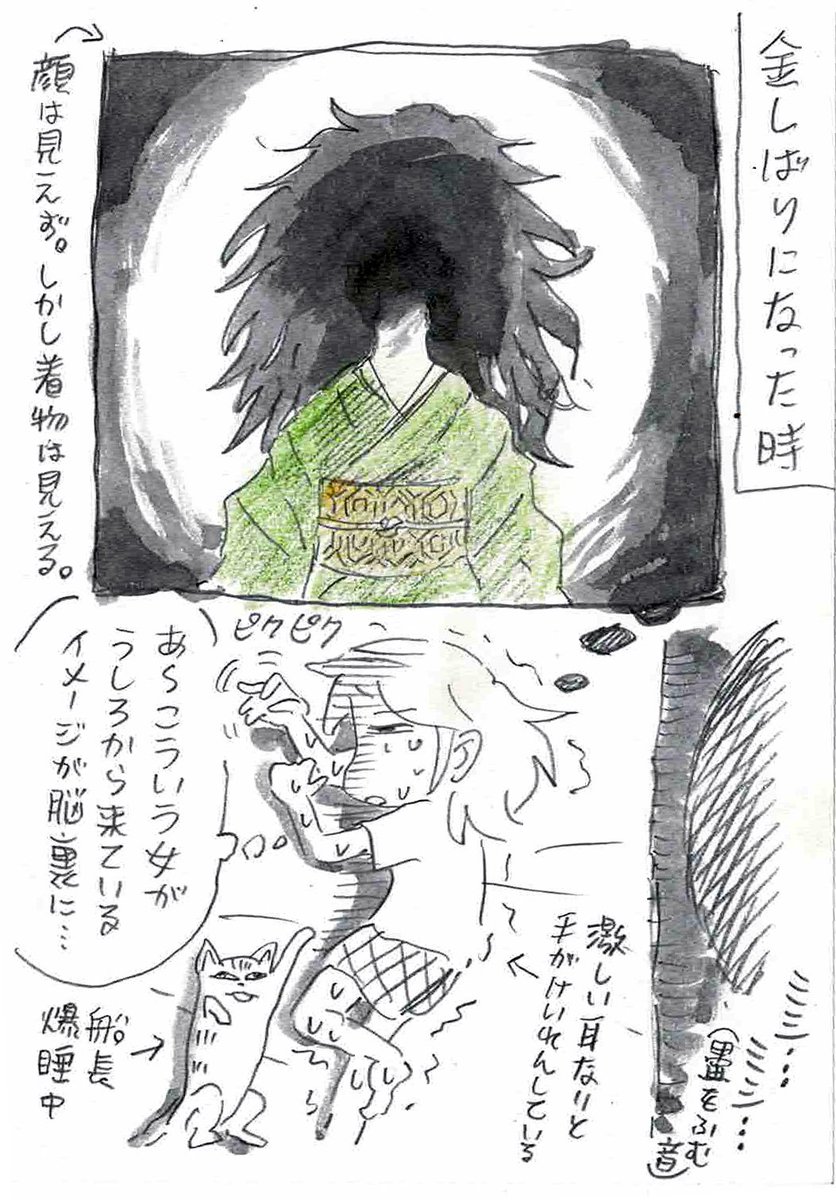 金しばりになった時
顔は見えず。しかし着物は見える。
ミシ…
ミシミシ…
(畳をふむ
音)
激しい耳なりと
手がけいれんしている
ピクピク
あ〜こういう女が
うしろから来ている
イメージが脳裏に…
船長
爆睡中